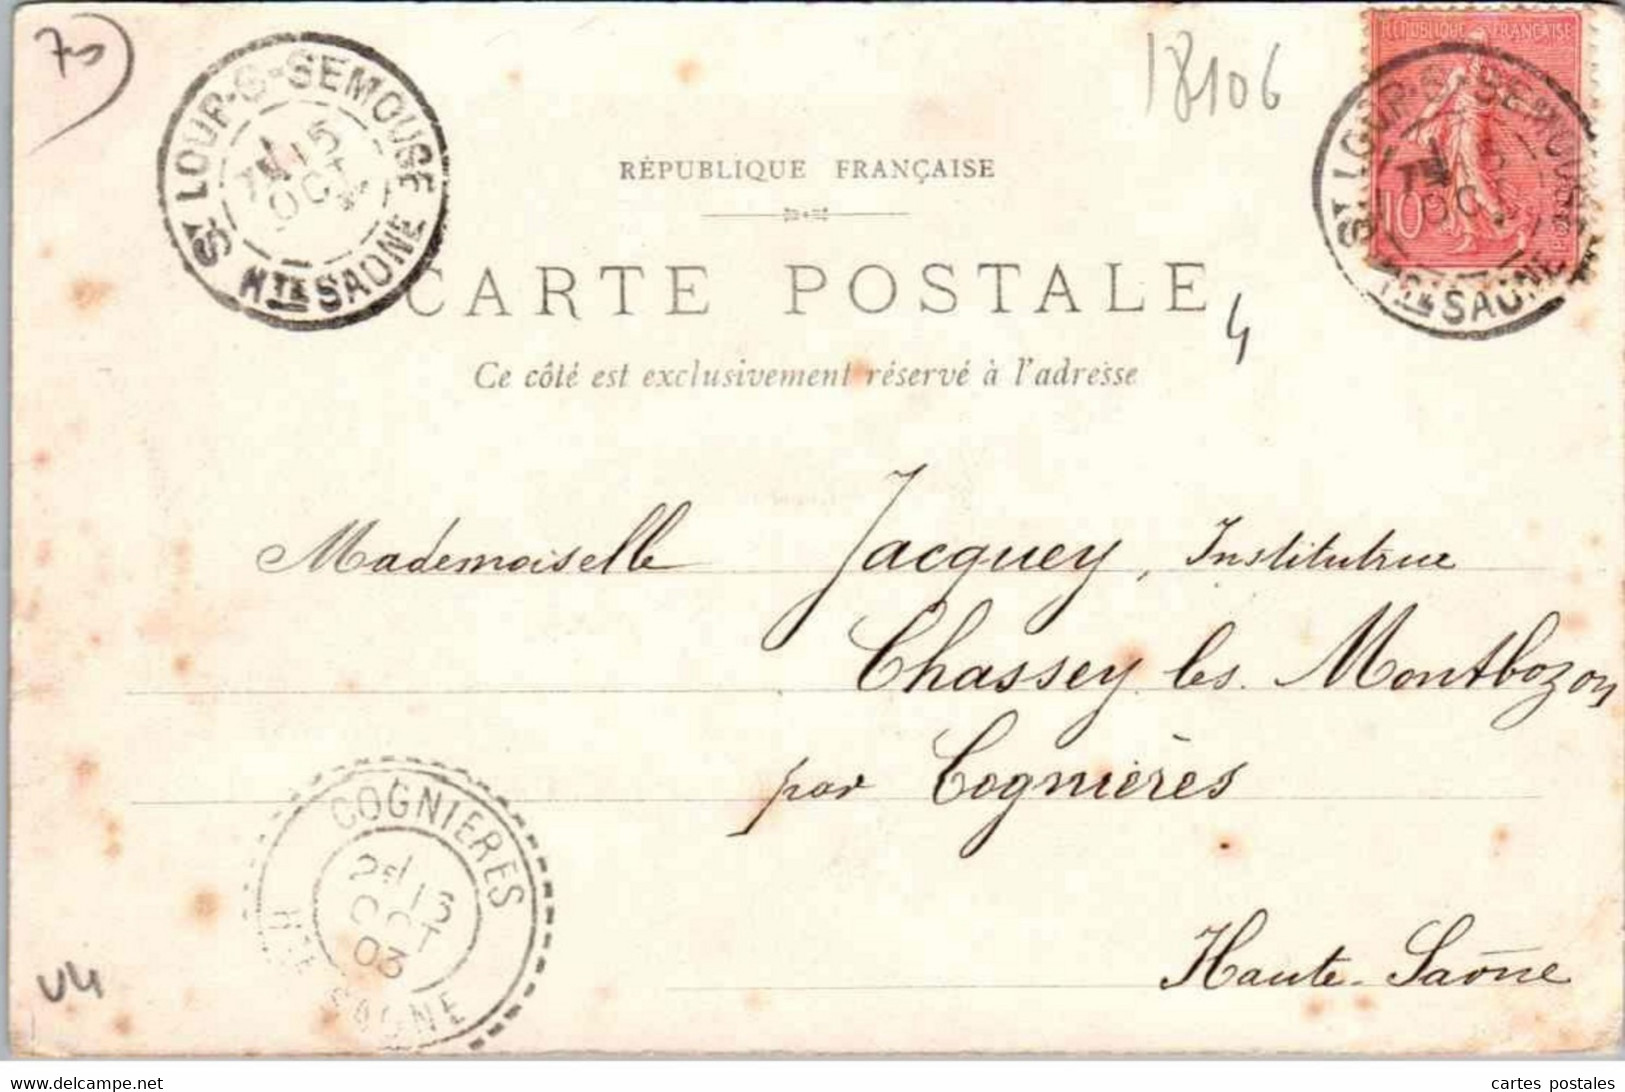 75
18106
RÉPUBLIQUE FRANÇAISE
10
ST LOUP-S-SEMOUSE
15
OCT
HTE SAONE
ST LOUP-S-SEMOUSE
OCT
HTE SAONE
RÉPUBLIQUE FRANÇAISE
CARTE POSTALE
4
Ce côté est exclusivement réservé à l'adresse
Mademoiselle Jacquey, Institutrice
Chassey les Montbozon
par Cognières
Haute-Saône
COGNIERES
2E
16
OCT
03
HTE SAONE
V4
www.delcampe.net
cartes postales